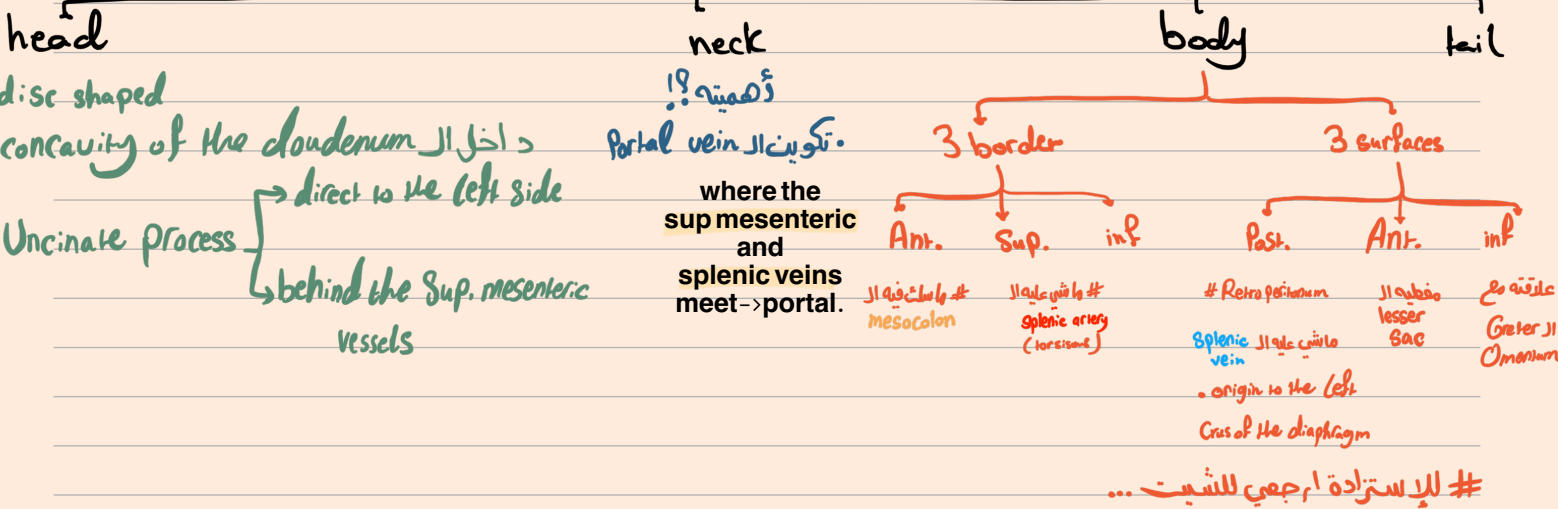 head
neck
body
tail
disc shaped
concavity of the doudenum داخل ال
Uncinate process
direct to the left side
behind the Sup. mesenteric
vessels
أهميته ؟!
. تكوين ال Portal vein
where the
sup mesenteric
and
splenic veins
meet->portal.
3 border
Ant.
Sup.
inf
# ماسك فيه ال
mesocolon
# ماشي عليه ال
splenic artery
(torsisous)
3 surfaces
Post.
Ant.
inf
# Retroperitonum
ماشي عليه ال Splenic
vein
. origin to the left
Crus of the diaphragm
مغطيه ال
lesser
Sac
علاقته مع
ال Greter
Omentum
# للإستزادة ارجعي للشيت ...